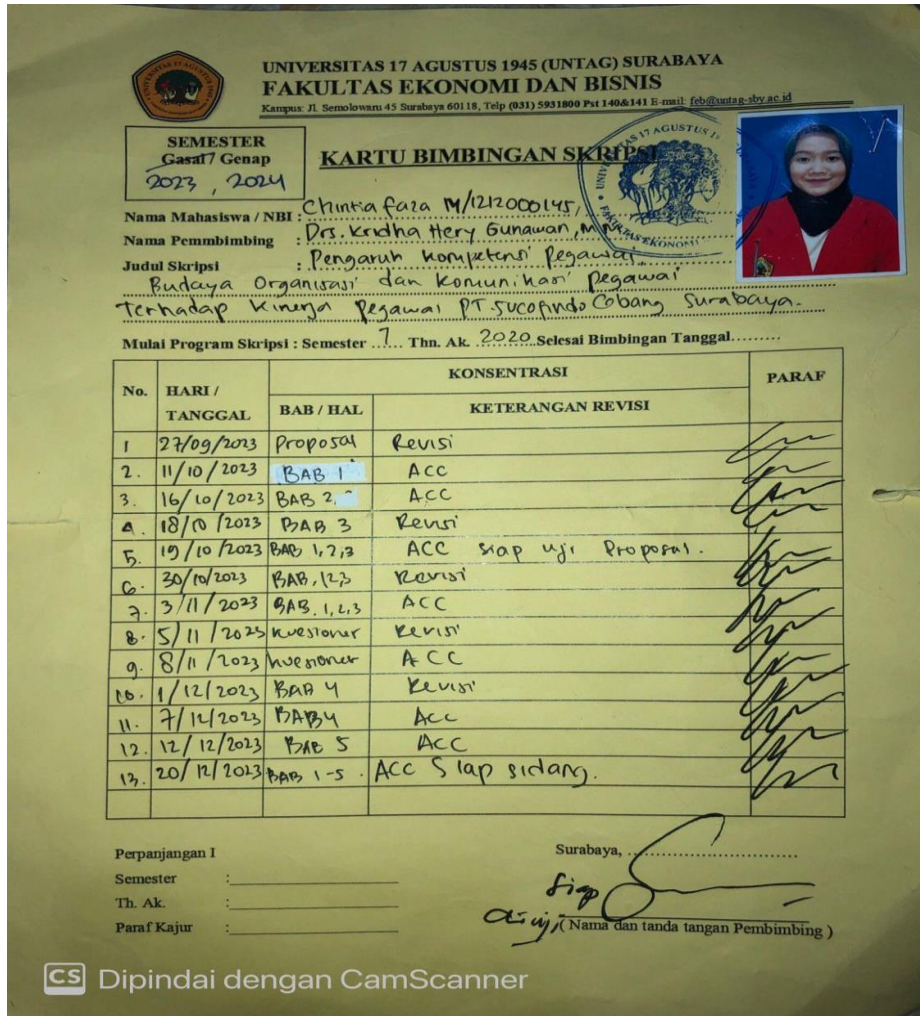 UNIVERSITAS 17 AGUSTUS 1945 (UNTAG) SURABAYA
FAKULTAS EKONOMI DAN BISNIS
Kampus: Jl. Semolowaru 45 Surabaya 60118, Telp (031) 5931800 Pst 140&141 E-mail: feb@untag-sby.ac.id
SEMESTER
Gasal / Genap
2023, 2024
KARTU BIMBINGAN SKRIPSI
Nama Mahasiswa / NBI : Chintia faza M/1212000145/
Nama Pemmbimbing : Drs. Kridha Hery Gunawan,
Judul Skripsi : Pengaruh Kompetensi Pegawai,
Budaya Organisasi dan Komunikasi Pegawai
Terhadap Kinerja Pegawai PT. Sucofindo Cobang Surabaya.
Mulai Program Skripsi : Semester 7 Thn. Ak. 2020 Selesai Bimbingan Tanggal.........
No. HARI / TANGGAL KONSENTRASI PARAF
BAB / HAL KETERANGAN REVISI
1 27/09/2023 Proposal Revisi
2. 11/10/2023 BAB 1 ACC
3. 16/10/2023 BAB 2 ACC
4. 18/10/2023 BAB 3 Revisi
5. 19/10/2023 BAB 1,2,3 ACC siap uji Proposal.
6. 30/10/2023 BAB.1,2,3 Revisi
7. 3/11/2023 BAB.1,2,3 ACC
8. 5/11/2023 kuesioner Revisi
9. 8/11/2023 kuesioner ACC
10. 1/12/2023 BAB 4 Revisi
11. 7/12/2023 BAB 4 Acc
12. 12/12/2023 BAB 5 ACC
13. 20/12/2023 BAB 1-5. ACC Siap sidang.
Perpanjangan I
Semester :
Th. Ak. :
Paraf Kajur :
Surabaya, ..............................
Siap
diuji
( Nama dan tanda tangan Pembimbing )
CS Dipindai dengan CamScanner